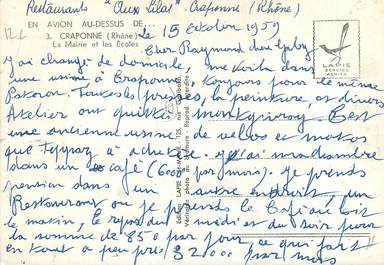 Restaurants "Aux Lilas" Craponne (Rhône)
EN AVION AU-DESSUS DE...
3. CRAPONNE (Rhône)
La Mairie et les Ecoles
LAPIE
SERVICE
AERIEN
le 15 Octobre 1959
Cher Raymond chère
j'ai changé de domicile, me voilà dans
une usine à Craponne, toujours pour le même
Patron. Toutes les presses, la peinture, et divers
Atelier ont quittés. C'est
une ancienne usine de vélos et motos
que Teppaz a acheté. j'ai ma chambre
dans un café (6000 par mois). je prends
pension dans un autre endroit, un
Restaurant ou je prends le Café au lait
le matin, le repas du midi et du soir pour
la somme de 850 par jour, ce qui fait
en tout à peu près 32000 par mois